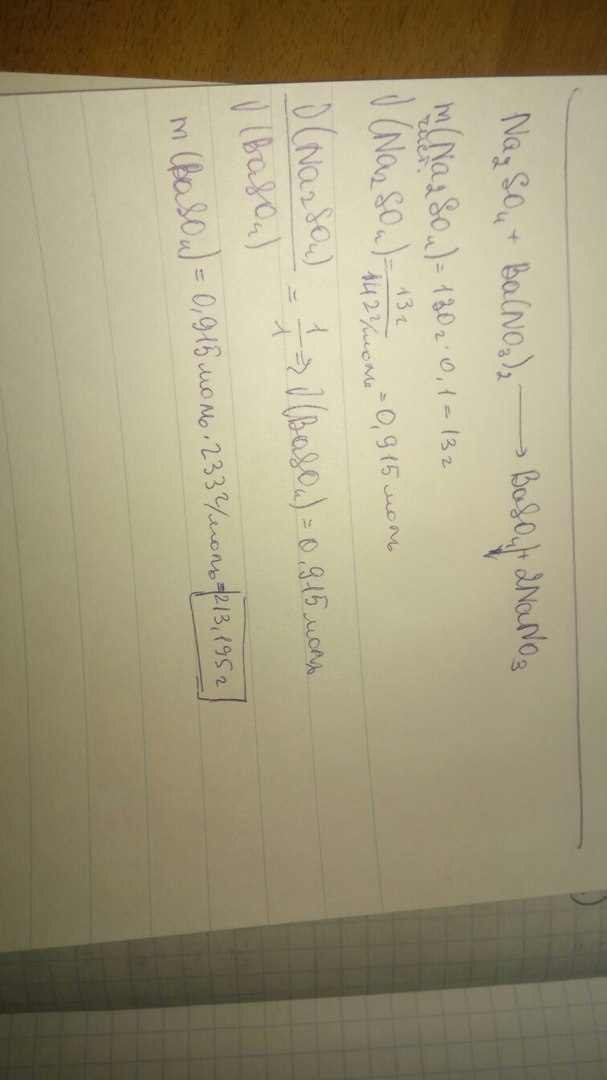 Na₂SO₄ + Ba(NO₃)₂ ⟶ BaSO₄↓ + 2NaNO₃
m(Na₂SO₄) = 130г · 0,1 = 13г
чист.
ν(Na₂SO₄) = 13г / 142г/моль = 0,915 моль
ν(Na₂SO₄) / ν(BaSO₄) = 1/1 ⇒ ν(BaSO₄) = 0,915 моль
m(BaSO₄) = 0,915 моль · 233г/моль = 213,195г